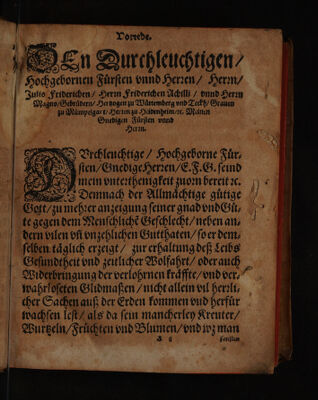 Vorrede.
DEn Durchleuchtigen/
Hochgebornen Fürsten vnnd Herren/ Herrn/
Julio Friderichen/ Herrn Friderichen Achilli/ vnnd Herrn
Magno/ Gebrüdern/ Hertzogen zu Würtemberg vnd Teckh/ Grauen
zu Mümpelgart/ Herren zu Haidenheim/ ꝛc. Meinen
Gnedigen Fürsten vnnd
Herrn.
DUrchleuchtige/ Hochgeborne Für-
sten/ Gnedige Herren/ E. F. G. seind
mein vnterthenigkeit zuorn bereit ꝛc.
Demnach der Allmächtige gütige
Gott/ zu mehrer anzeigung seiner gnad vnd Gü-
te gegen dem Menschlichē Geschlecht/ neben an-
dern vilen vñ vnzehlichen Gutthaten/ so er dem-
selben täglich erzeigt/ zur erhaltung deß Leibs
Gesundtheit vnd zeitlicher Wolfahrt/ oder auch
Widerbringung der verlohrnen kräffte/ vnd ver-
warloseten Glidmaßen/ nicht allein vil herrli-
cher Sachen auß der Erden kommen vnd herfür
wachsen lest/ als da sein mancherley Kreuter/
Wurtzeln/ Früchten vnd Blumen/ vnd wz man